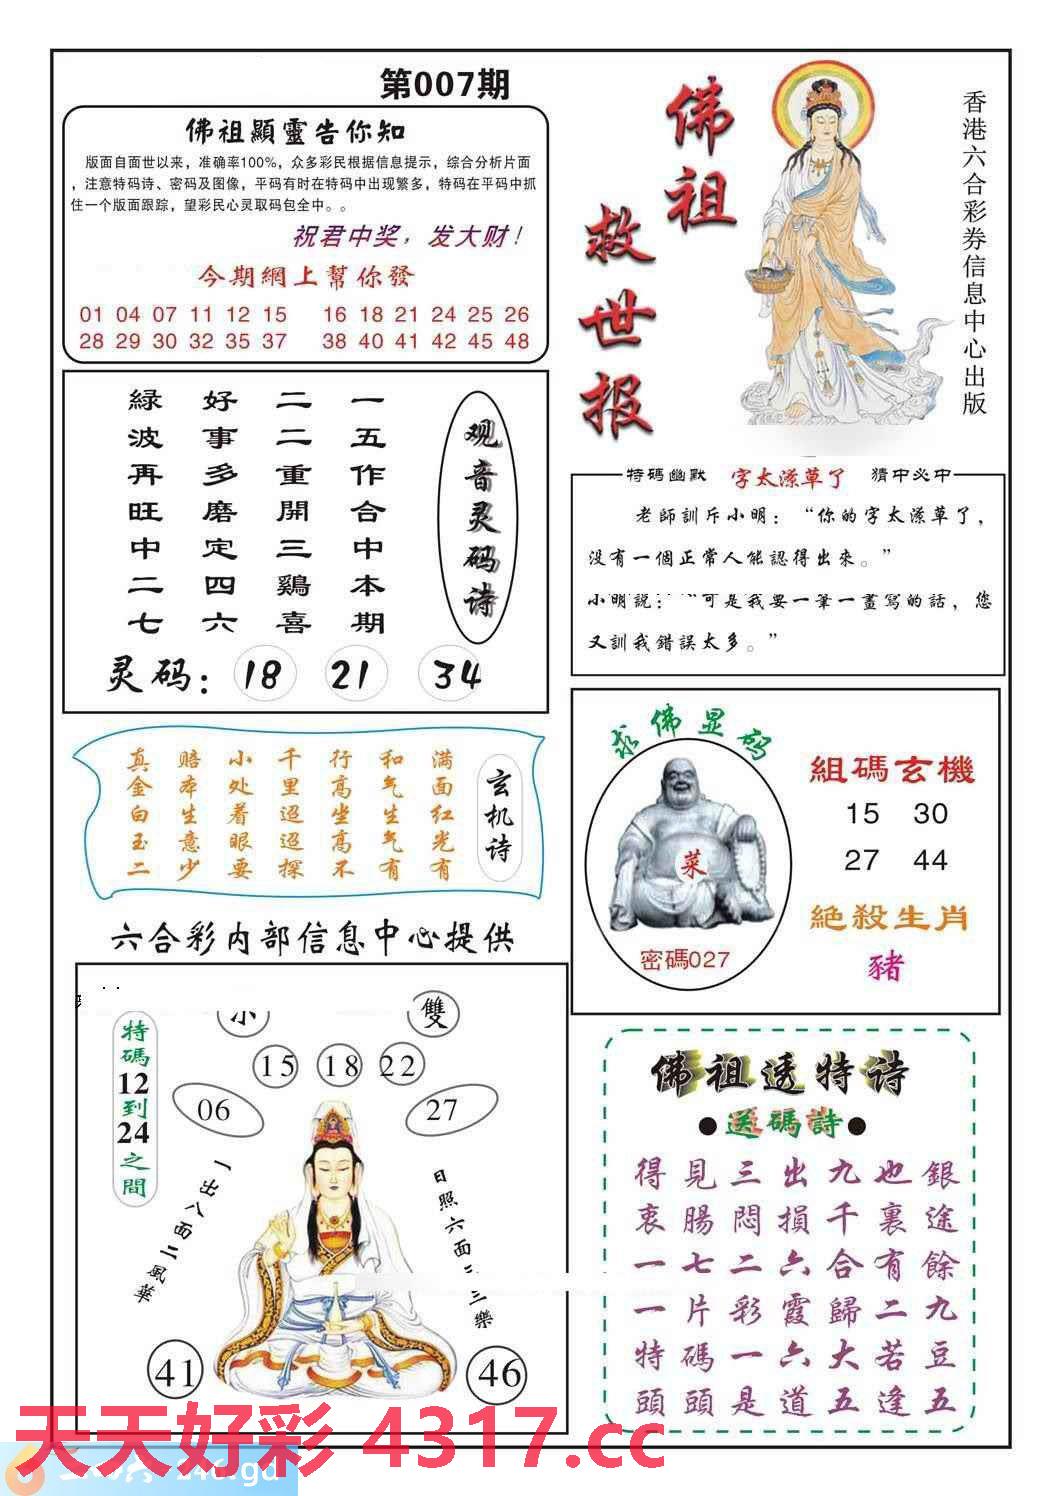 第007期
佛祖顯靈告你知
版面自面世以来，准确率100%，众多彩民根据信息提示，综合分析片面
，注意特码诗、密码及图像，平码有时在特码中出现繁多，特码在平码中抓
住一个版面跟踪，望彩民心灵取码包全中。。
祝君中奖，发大财！
今期網上幫你發
01 04 07 11 12 15 16 18 21 24 25 26
28 29 30 32 35 37 38 40 41 42 45 48
佛祖
救世报
香港六合彩券信息中心出版
观音灵码诗
一五作合中本期
二二重開三鷄喜
好事多磨定四六
緑波再旺中二七
灵码：18 21 34
特碼幽默 字太潦草了 猜中必中
老師訓斥小明：“你的字太潦草了，
没有一個正常人能認得出來。”
小明説：“可是我要一筆一畫寫的話，您
又訓我錯誤太多。”
玄机诗
满面红光有
和气生气有
行高坐高不
千里迢迢探
小处着眼要
赔本生意少
真金白玉二
求佛显码
菜
密碼027
組碼玄機
15 30
27 44
絶殺生肖
豬
六合彩内部信息中心提供
雙
特碼12到24之間
15 18 22
06 27
一出八面二風華
日照六面三樂
41 46
佛祖透特诗
●送碼詩●
得見三出九也銀
衷腸悶損千裏途
一七二六合有餘
一片彩霞歸二九
特碼一六大若豆
頭頭是道五逢五
天天好彩 4317.cc
246.gd